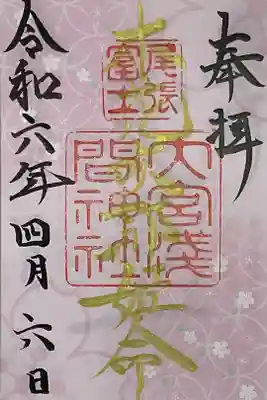 奉拝
尾張
富士
大宮浅
間神社
姫命
令和六年四月六日